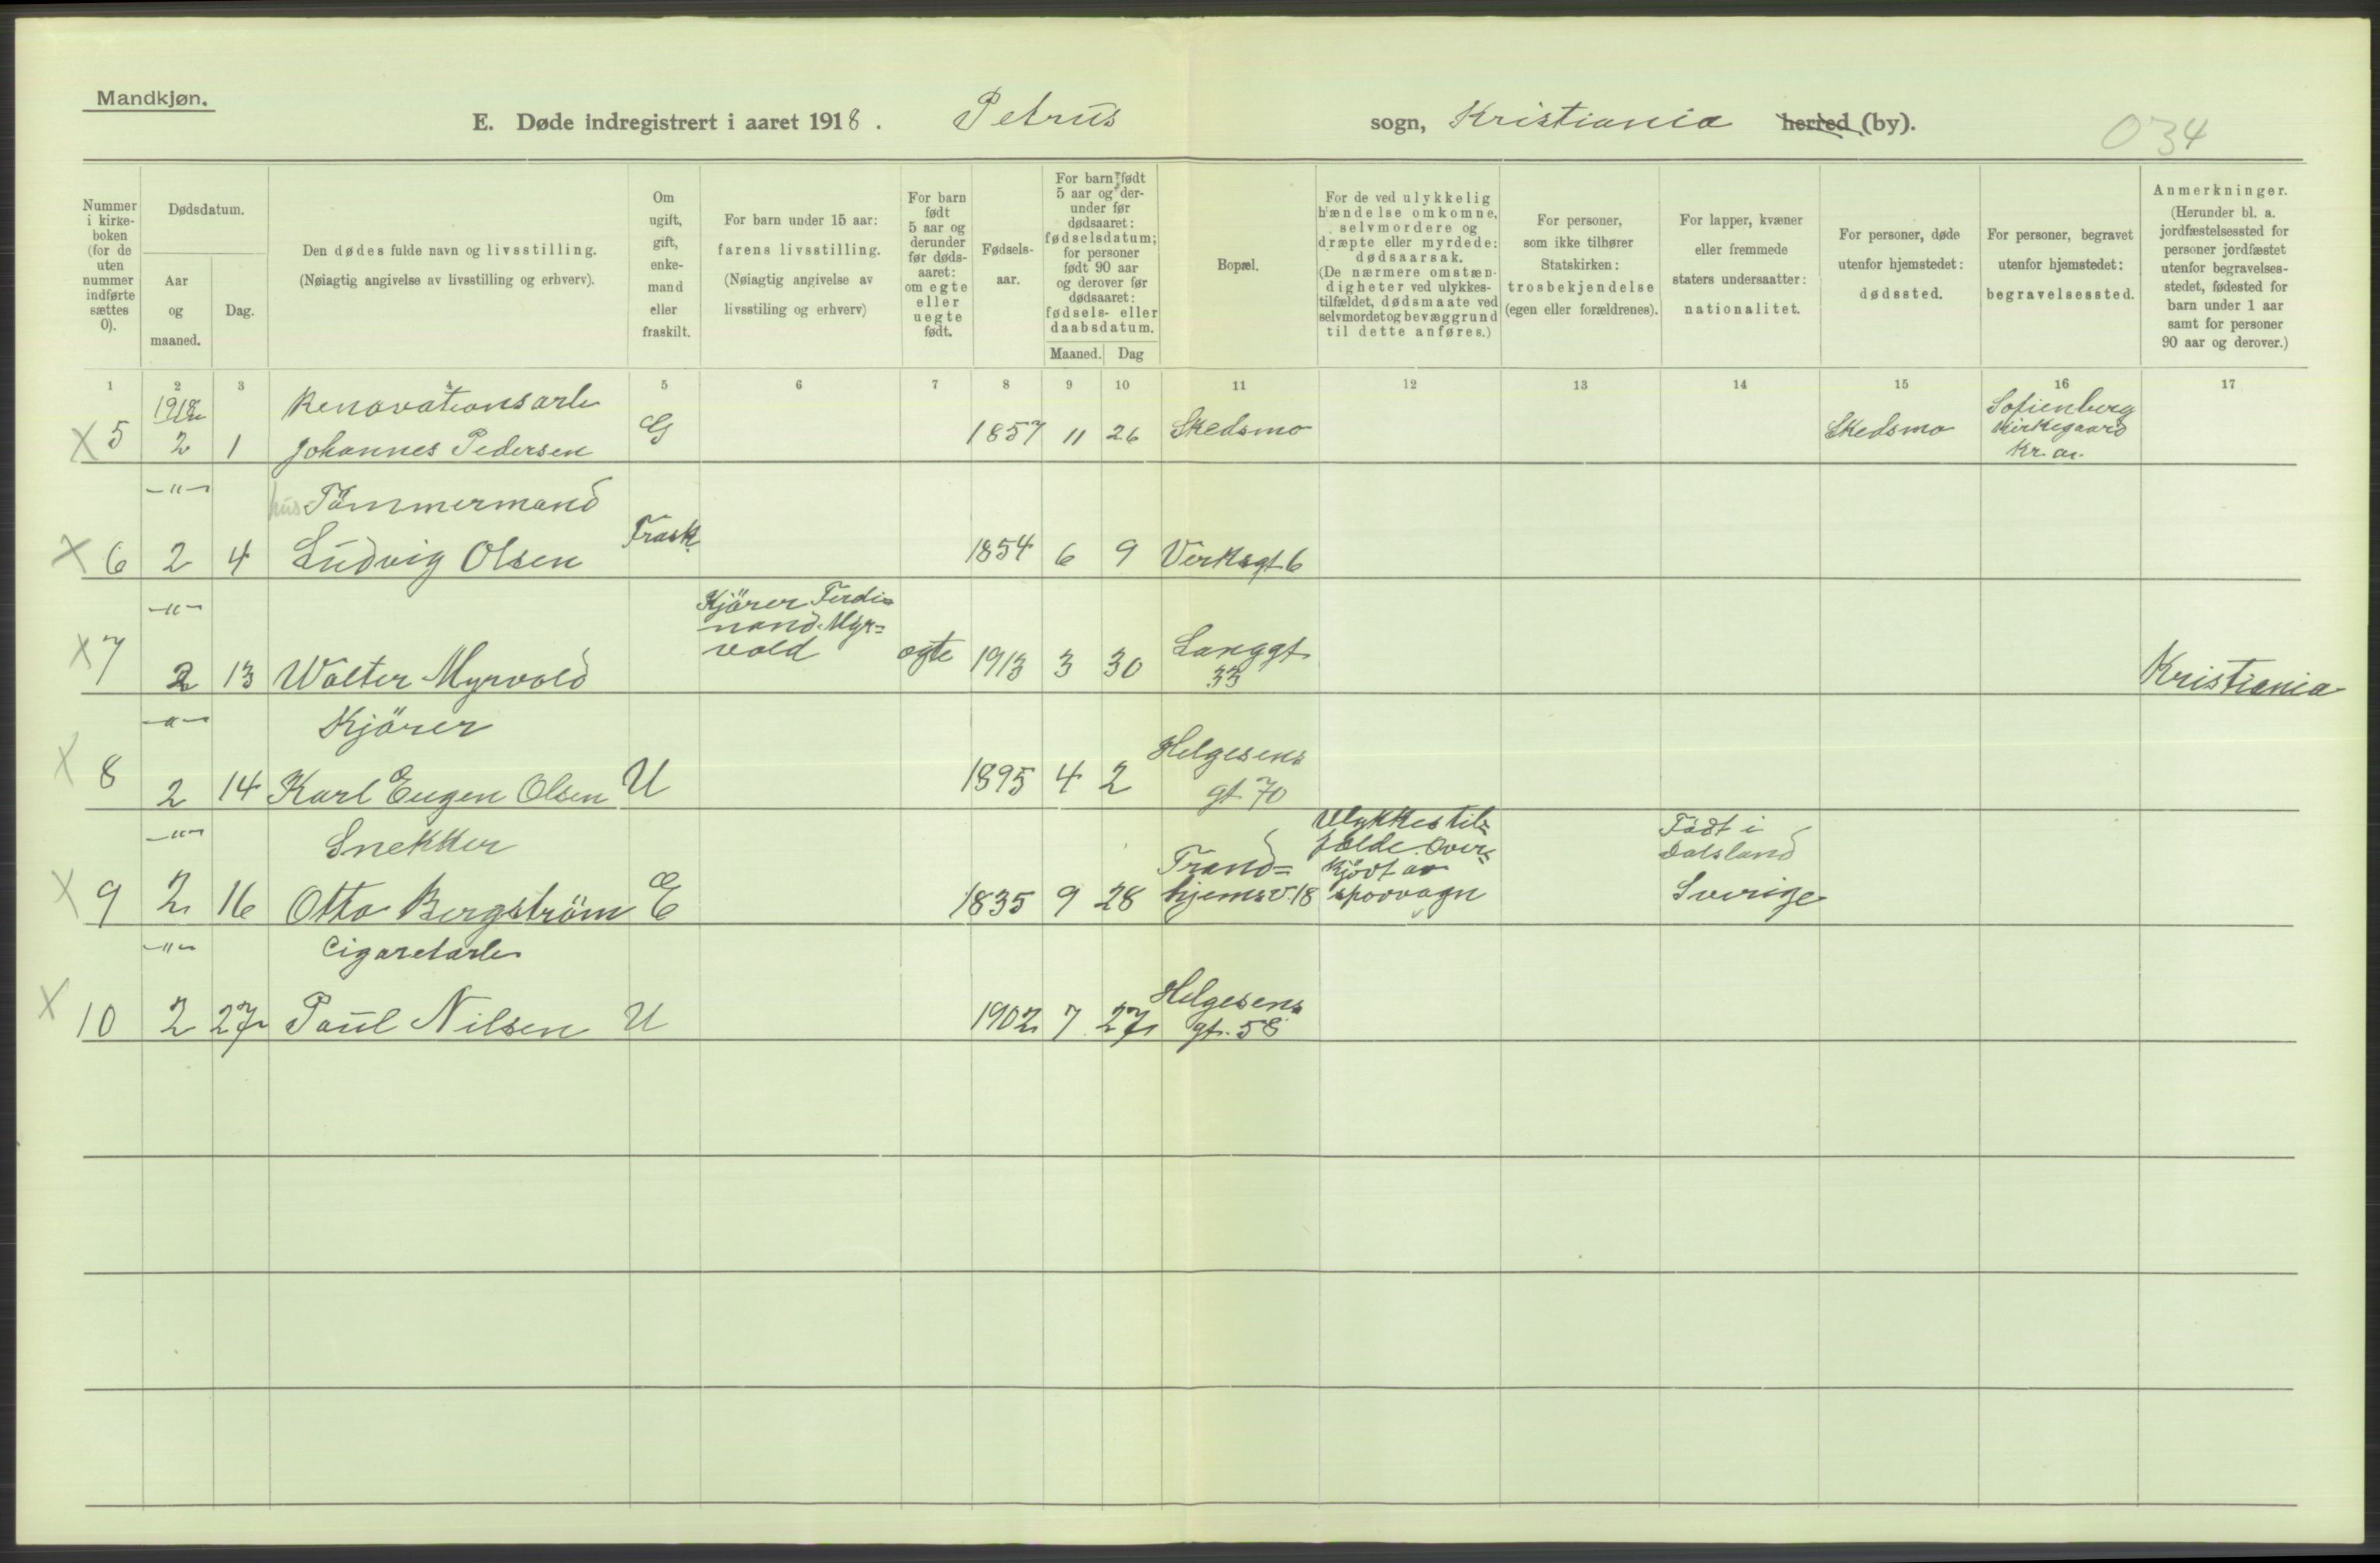 Mandkjøn.
E. Døde indregistrert i aaret 1918. Petrus sogn, Kristiania herred (by).
034
Nummer i kirke- boken (for de uten nummer indførte sættes 0).
Dødsdatum.
Aar og maaned.
Dag.
Den dødes fulde navn og livsstilling.
(Nøiagtig angivelse av livsstilling og erhverv).
Om ugift, gift, enke- mand eller fraskilt.
For barn under 15 aar: farens livsstilling.
(Nøiagtig angivelse av livsstiling og erhverv)
For barn født 5 aar og derunder før døds- aaret: om egte eller uegte født.
Fødsels- aar.
For barn født 5 aar og der- under før dødsaaret: fødselsdatum; for personer født 90 aar og derover før dødsaaret: fødsels- eller daabsdatum.
Maaned. Dag
Bopæl.
For de ved ulykkelig hændelse omkomne, selvmordere og dræpte eller myrdede: dødsaarsak.
(De nærmere omstæn- digheter ved ulykkes- tilfældet, dødsmaate ved selvmordet og bevæggrund til dette anføres.)
For personer, som ikke tilhører Statskirken: trosbekjendelse (egen eller forældrenes).
For lapper, kvæner eller fremmede staters undersaatter: nationalitet.
For personer, døde utenfor hjemstedet: dødssted.
For personer, begravet utenfor hjemstedet: begravelsessted.
Anmerkninger.
(Herunder bl. a. jordfæstelsessted for personer jordfæstet utenfor begravelses- stedet, fødested for barn under 1 aar samt for personer 90 aar og derover.)
1 2 3 4 5 6 7 8 9 10 11 12 13 14 15 16 17
1918 Renovationsarb Sofienberg
X 5 2 1 Johannes Pedersen G 1857 11 26 Skedsmo Skedsmo kirkegaard
Kr.a.
-"- hus Tömmermand
X 6 2 4 Ludvig Olsen Frask. 1854 6 9 Verksgt. 6
-"- Kjörer Ferdi=
nand Myr=
X 7 2 13 Walter Myrvold vold ægte 1913 3 30 Langgt. 33 Kristiania
-"- Kjörer
X 8 2 14 Karl Eugen Olsen U 1895 4 2 Helgesens
gt. 70
-"- Snekker Ulykkestil=
fælde. Over= Födt i
Trond= kjört av Dalsland
X 9 2 16 Otto Bergström E 1835 9 28 hjemsv. 18 sporvagn Sverige
-"- Cigaretarb
X 10 2 27 Paul Nilsen U 1902 7 27 Helgesens
gt. 58